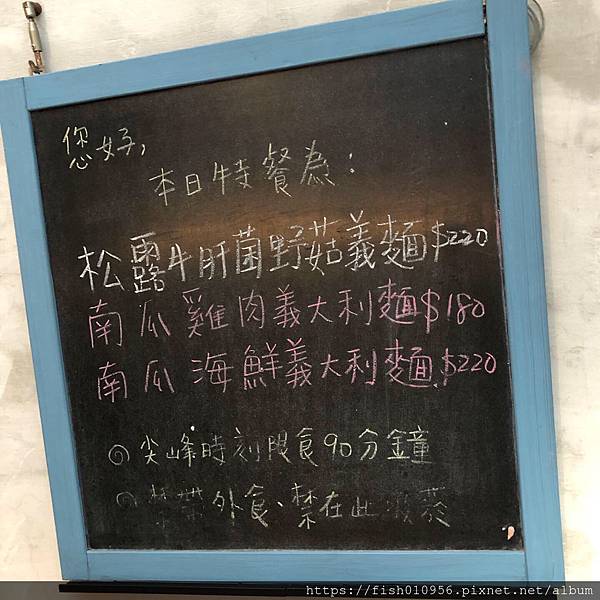 您好,
本日特餐為:
松露牛肝菌野菇義麵$220
南瓜雞肉義大利麵$180
南瓜海鮮義大利麵$220
尖峰時刻限食90分鐘
禁帶外食、禁在此吸菸
https://fish010956.pixnet.net/album